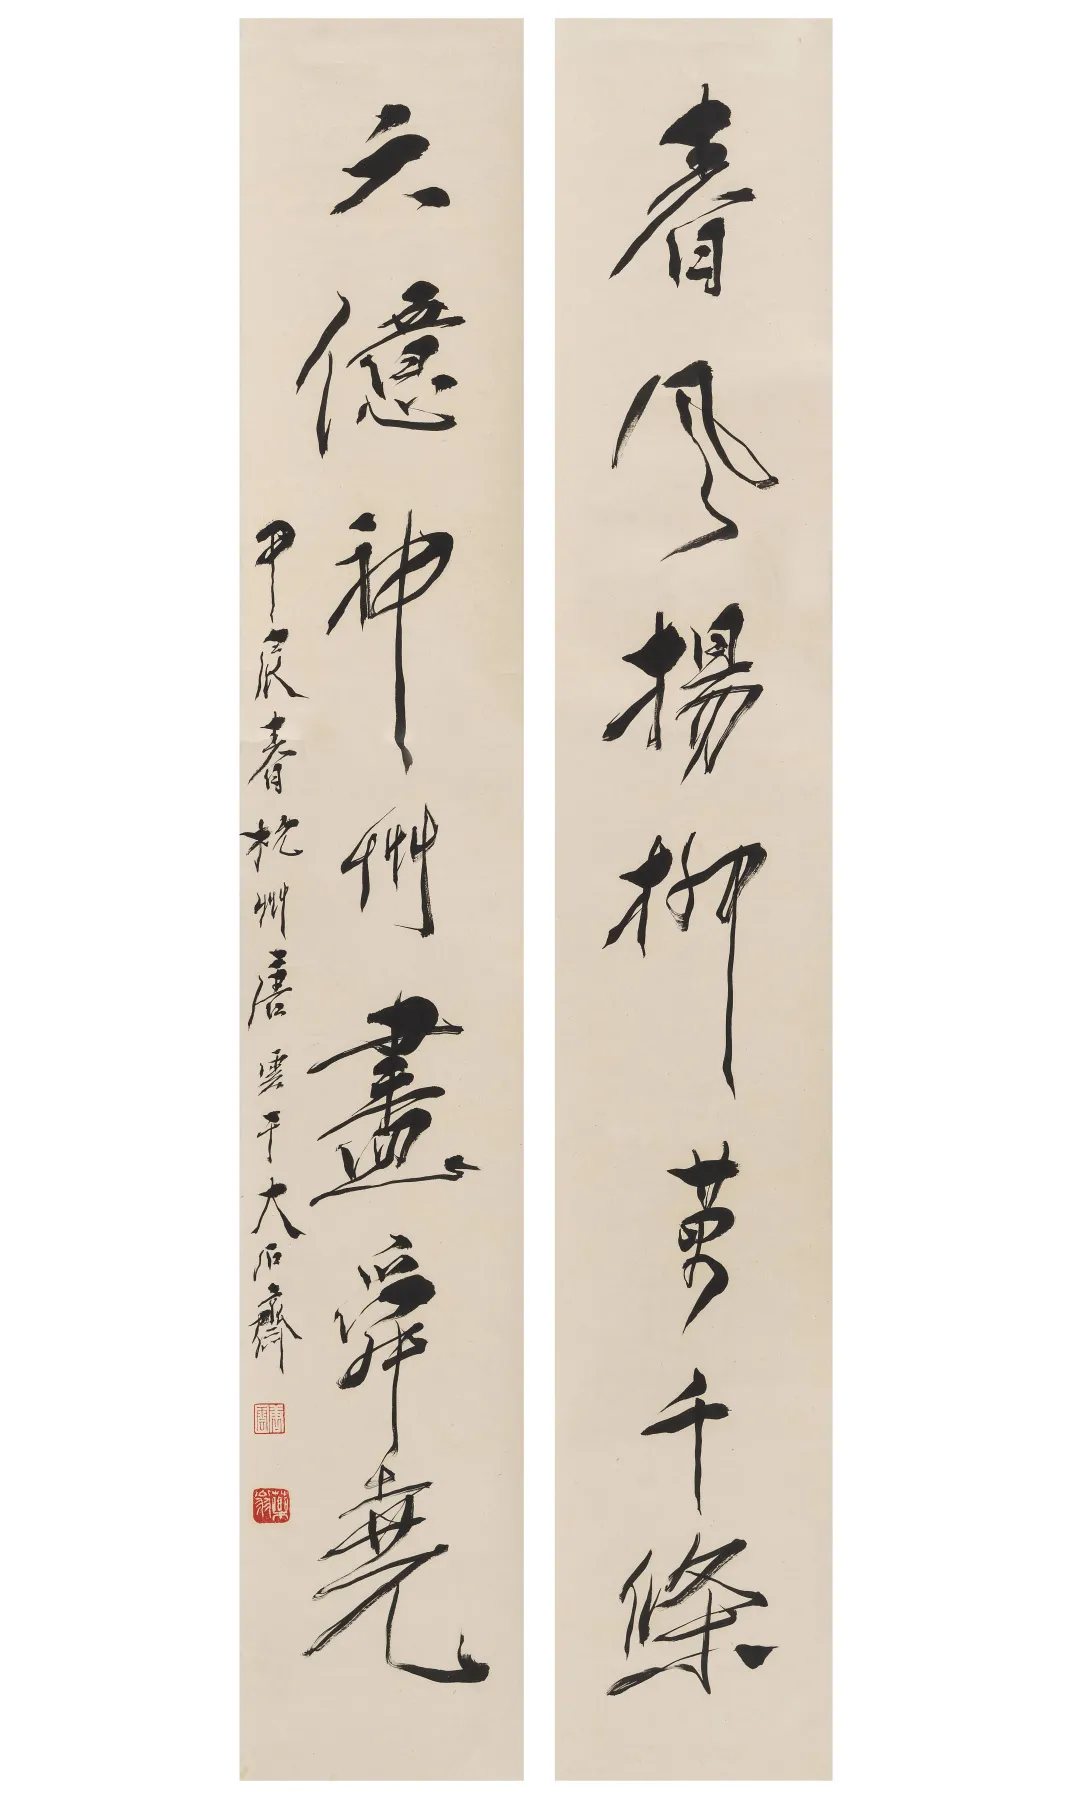 春風揚柳萬千條
六億神州盡舜堯
甲辰春杭州唐雲于大石齋
唐雲
藥翁